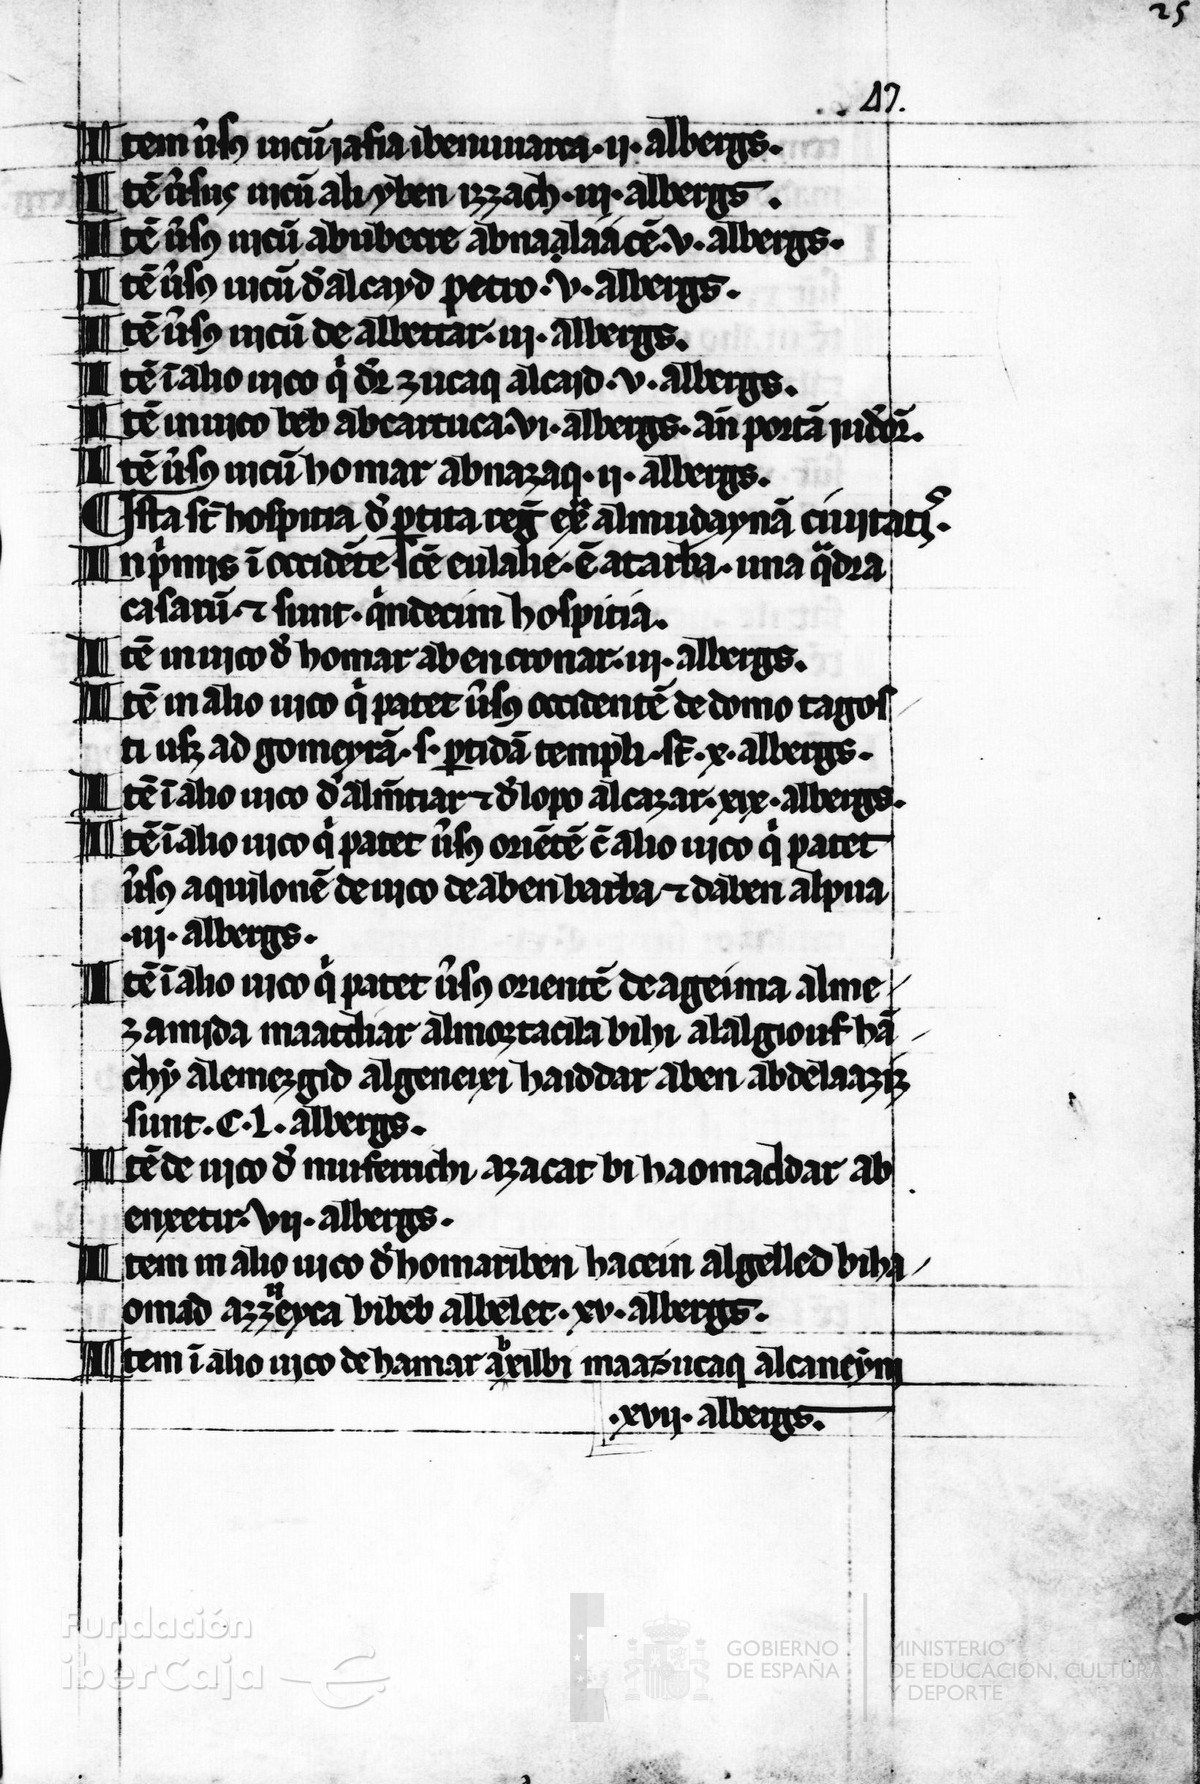 25
47.
Item ũsꝰ uicũ iafia ibenmarea · ij · albergs.
Itẽ ũsus uicũ ali yben izzach · iij · albergs.
Itẽ ũsꝰ uicũ abubecre abnaalaacẽ · v · albergs.
Itẽ ũsꝰ uicũ đ alcayd petro · v · albergs.
Itẽ ũsꝰ uicũ de albettar · iij · albergs.
Itẽ ĩ alio uico q̇ đr zucaq alcaid · v · albergs.
Itẽ in uico beb abcartuca · vi · albergs · añ portã iudor̃.
Itẽ ũsꝰ uicũ homar abnazaq · ij · albergs.
Ista st̃ hospitia đ ꝑtita reg̃ ex̃ almudaynã ciuitatis.
Inp̃mis ĩ occidẽte sc̃e eulalie · ẽ atarba · una q̃dra
casarũ · ⁊ sunt · q̇ndecim hospitia.
Itẽ in uico đ homar abencronar · iij · albergs.
Itẽ in alio uico q̇ patet ũsꝰ occidentẽ de domo tagos
ti usqꝫ ad gomeyrã · s · ꝑtidã templi · st̃ · x · albergs.
Itẽ ĩ alio uico đ alm̃ciar ⁊ đ lopo alcazar · xix · albergs.
Itẽ ĩ alio uico q̇ patet ũsꝰ oriẽtẽ c̃ alio uico q̇ patet
ũsꝰ aquilonẽ de uico de aben barba ⁊ daben alpua
· iij · albergs.
Itẽ ĩ alio uico q̇ patet ũsꝰ orientẽ de ageima alme
zamida maatchar almoztacila bihi alalgiouf hã
chỹ alemezgid algeneixi haiddar aben abdelaaziz
sunt · C · L · albergs.
Itẽ de uico đ muferrichi azacat bi haomaddar ab
enxetir · vij · albergs.
Item in alio uico đ homariben hacein algelled biha
omad azzeyca bibeb albelet · xv · albergs.
Item ĩ alio uico de hamar axilbi maazucaq alcaneym
· xvij · albergs.
Fundación
iberCaja
GOBIERNO
DE ESPAÑA
MINISTERIO
DE EDUCACIÓN, CULTURA
Y DEPORTE